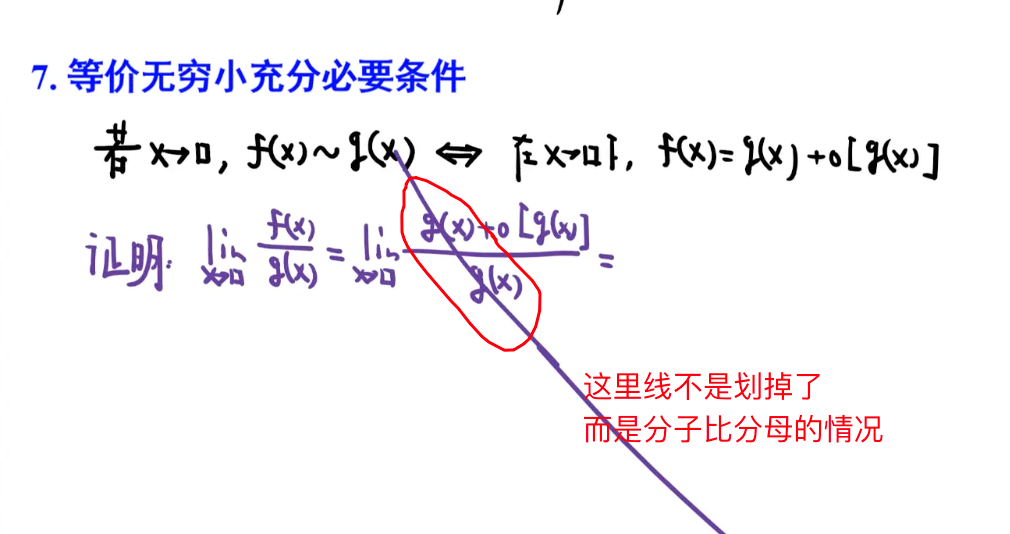 7. 等价无穷小充分必要条件
若 x→□, f(x)~g(x) ⇔ 在x→□下, f(x)=g(x)+o[g(x)]
证明: lim x→□ f(x)/g(x) = lim x→□ g(x)+o[g(x)]/g(x) =
这里线不是划掉了
而是分子比分母的情况